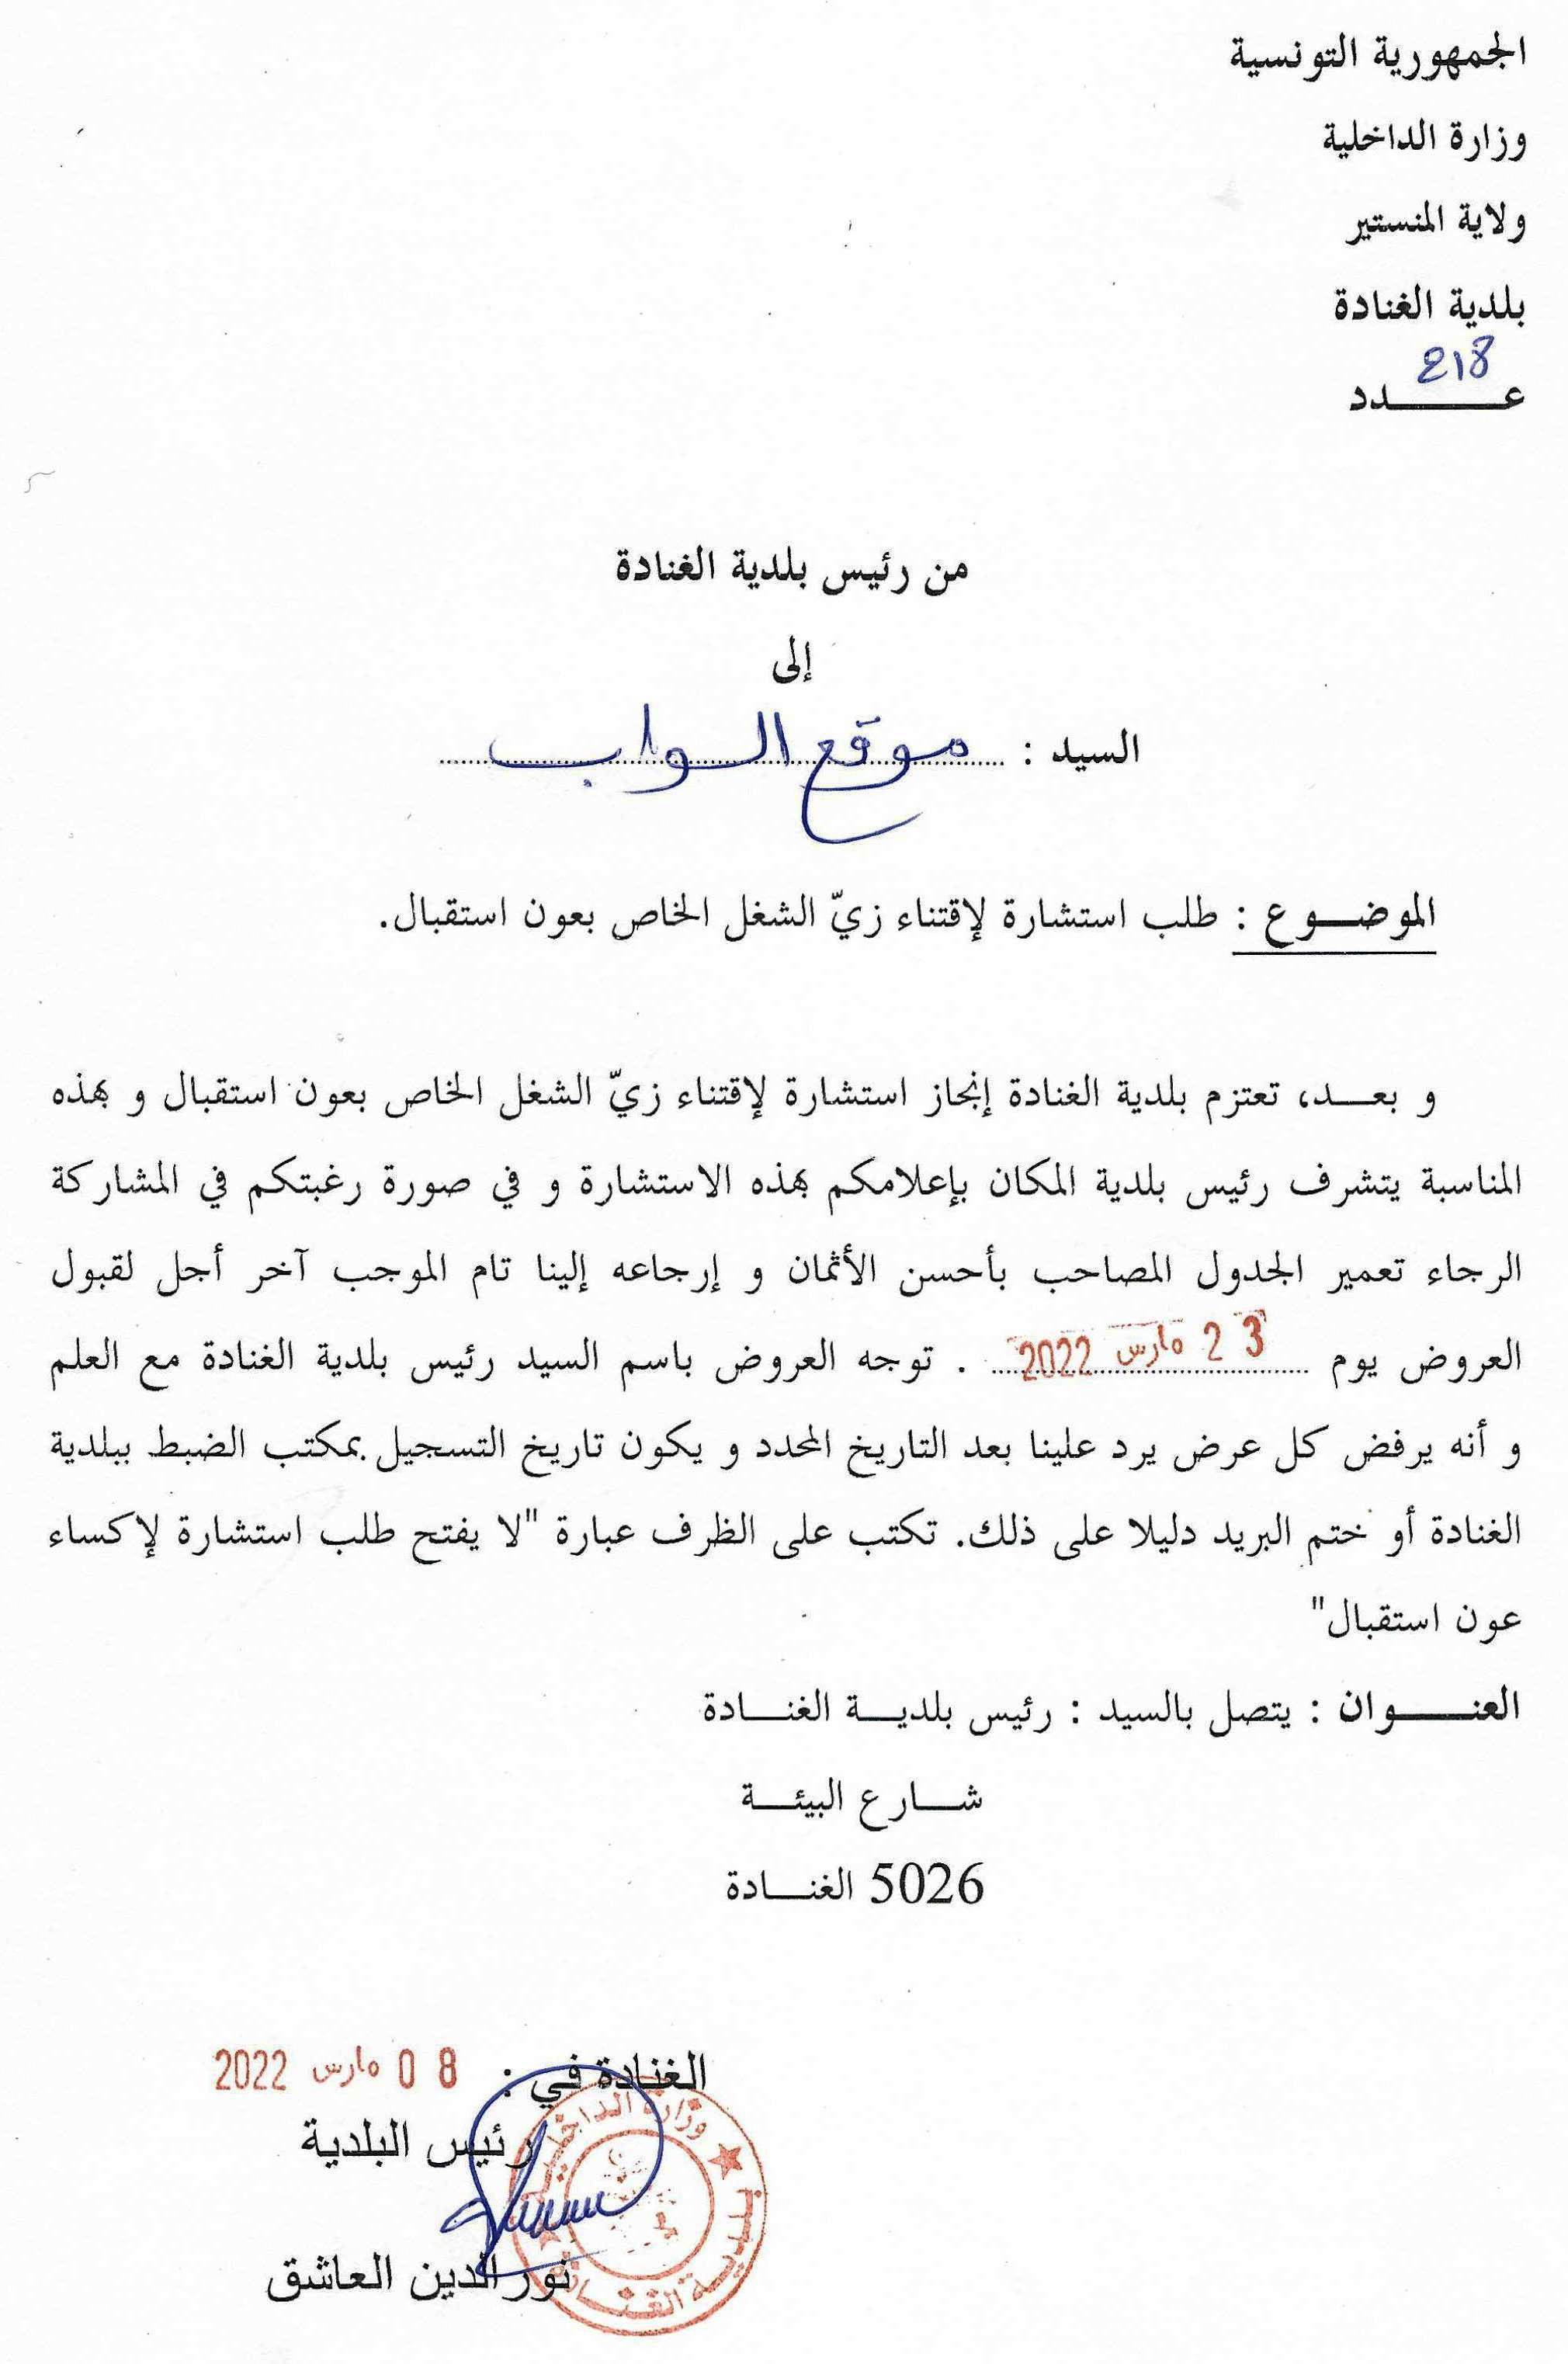 الجمهورية التونسية
وزارة الداخلية
ولاية المنستير
بلدية الغنادة
218
عـــــدد
من رئيس بلدية الغنادة
إلى
السيد : موقع الواب
الموضـــوع : طلب استشارة لإقتناء زيّ الشغل الخاص بعون استقبال.
و بعـــد، تعتزم بلدية الغنادة إنجاز استشارة لإقتناء زيّ الشغل الخاص بعون استقبال و بهذه
المناسبة يتشرف رئيس بلدية المكان بإعلامكم بهذه الاستشارة و في صورة رغبتكم في المشاركة
الرجاء تعمير الجدول المصاحب بأحسن الأثمان و إرجاعه إلينا تام الموجب آخر أجل لقبول
العروض يوم 23 مارس 2022 . توجه العروض باسم السيد رئيس بلدية الغنادة مع العلم
و أنه يرفض كل عرض يرد علينا بعد التاريخ المحدد و يكون تاريخ التسجيل بمكتب الضبط ببلدية
الغنادة أو ختم البريد دليلا على ذلك. تكتب على الظرف عبارة "لا يفتح طلب استشارة لإكساء
عون استقبال"
العنـــــوان : يتصل بالسيد : رئيس بلديـــة الغنـــادة
شـــارع البيئـــة
5026 الغنـــادة
الغنادة في : 08 مارس 2022
رئيس البلدية
نور الدين العاشق
وزارة الداخلية
بلدية الغنادة